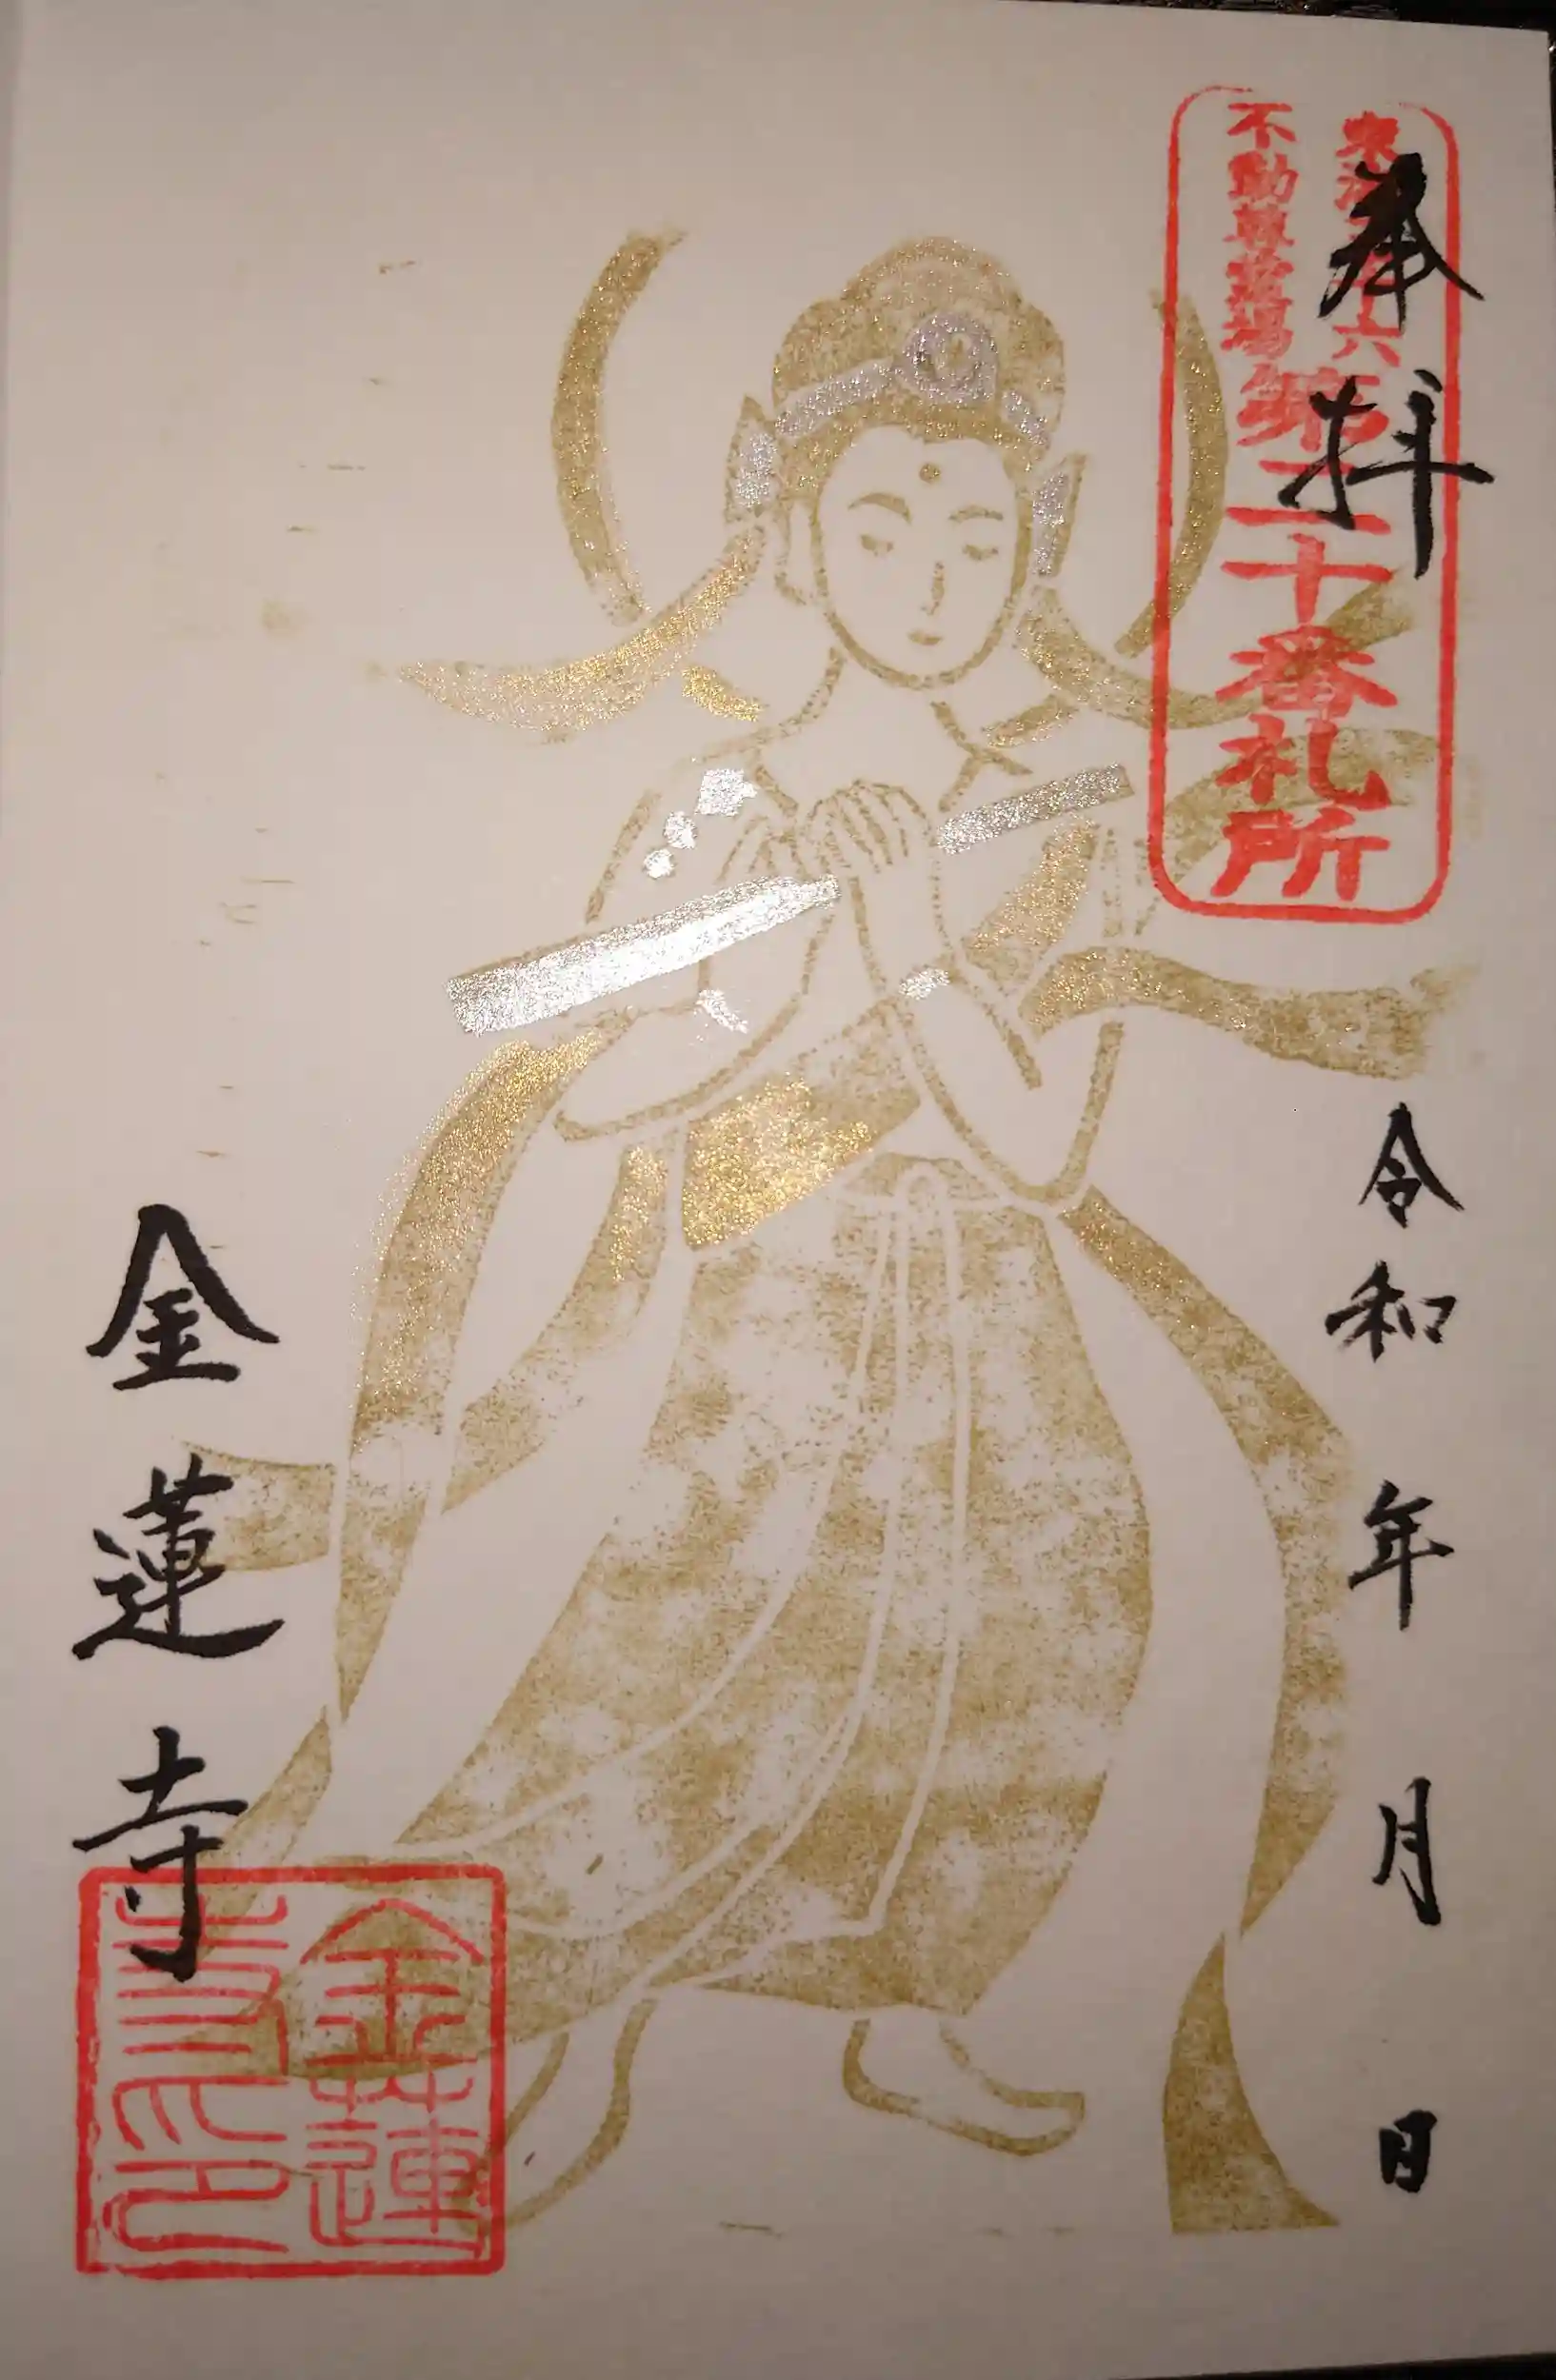 奉拝
東海三十六
不動尊霊場
第二十番札所
令和 年 月 日
金蓮寺
金蓮
寺印